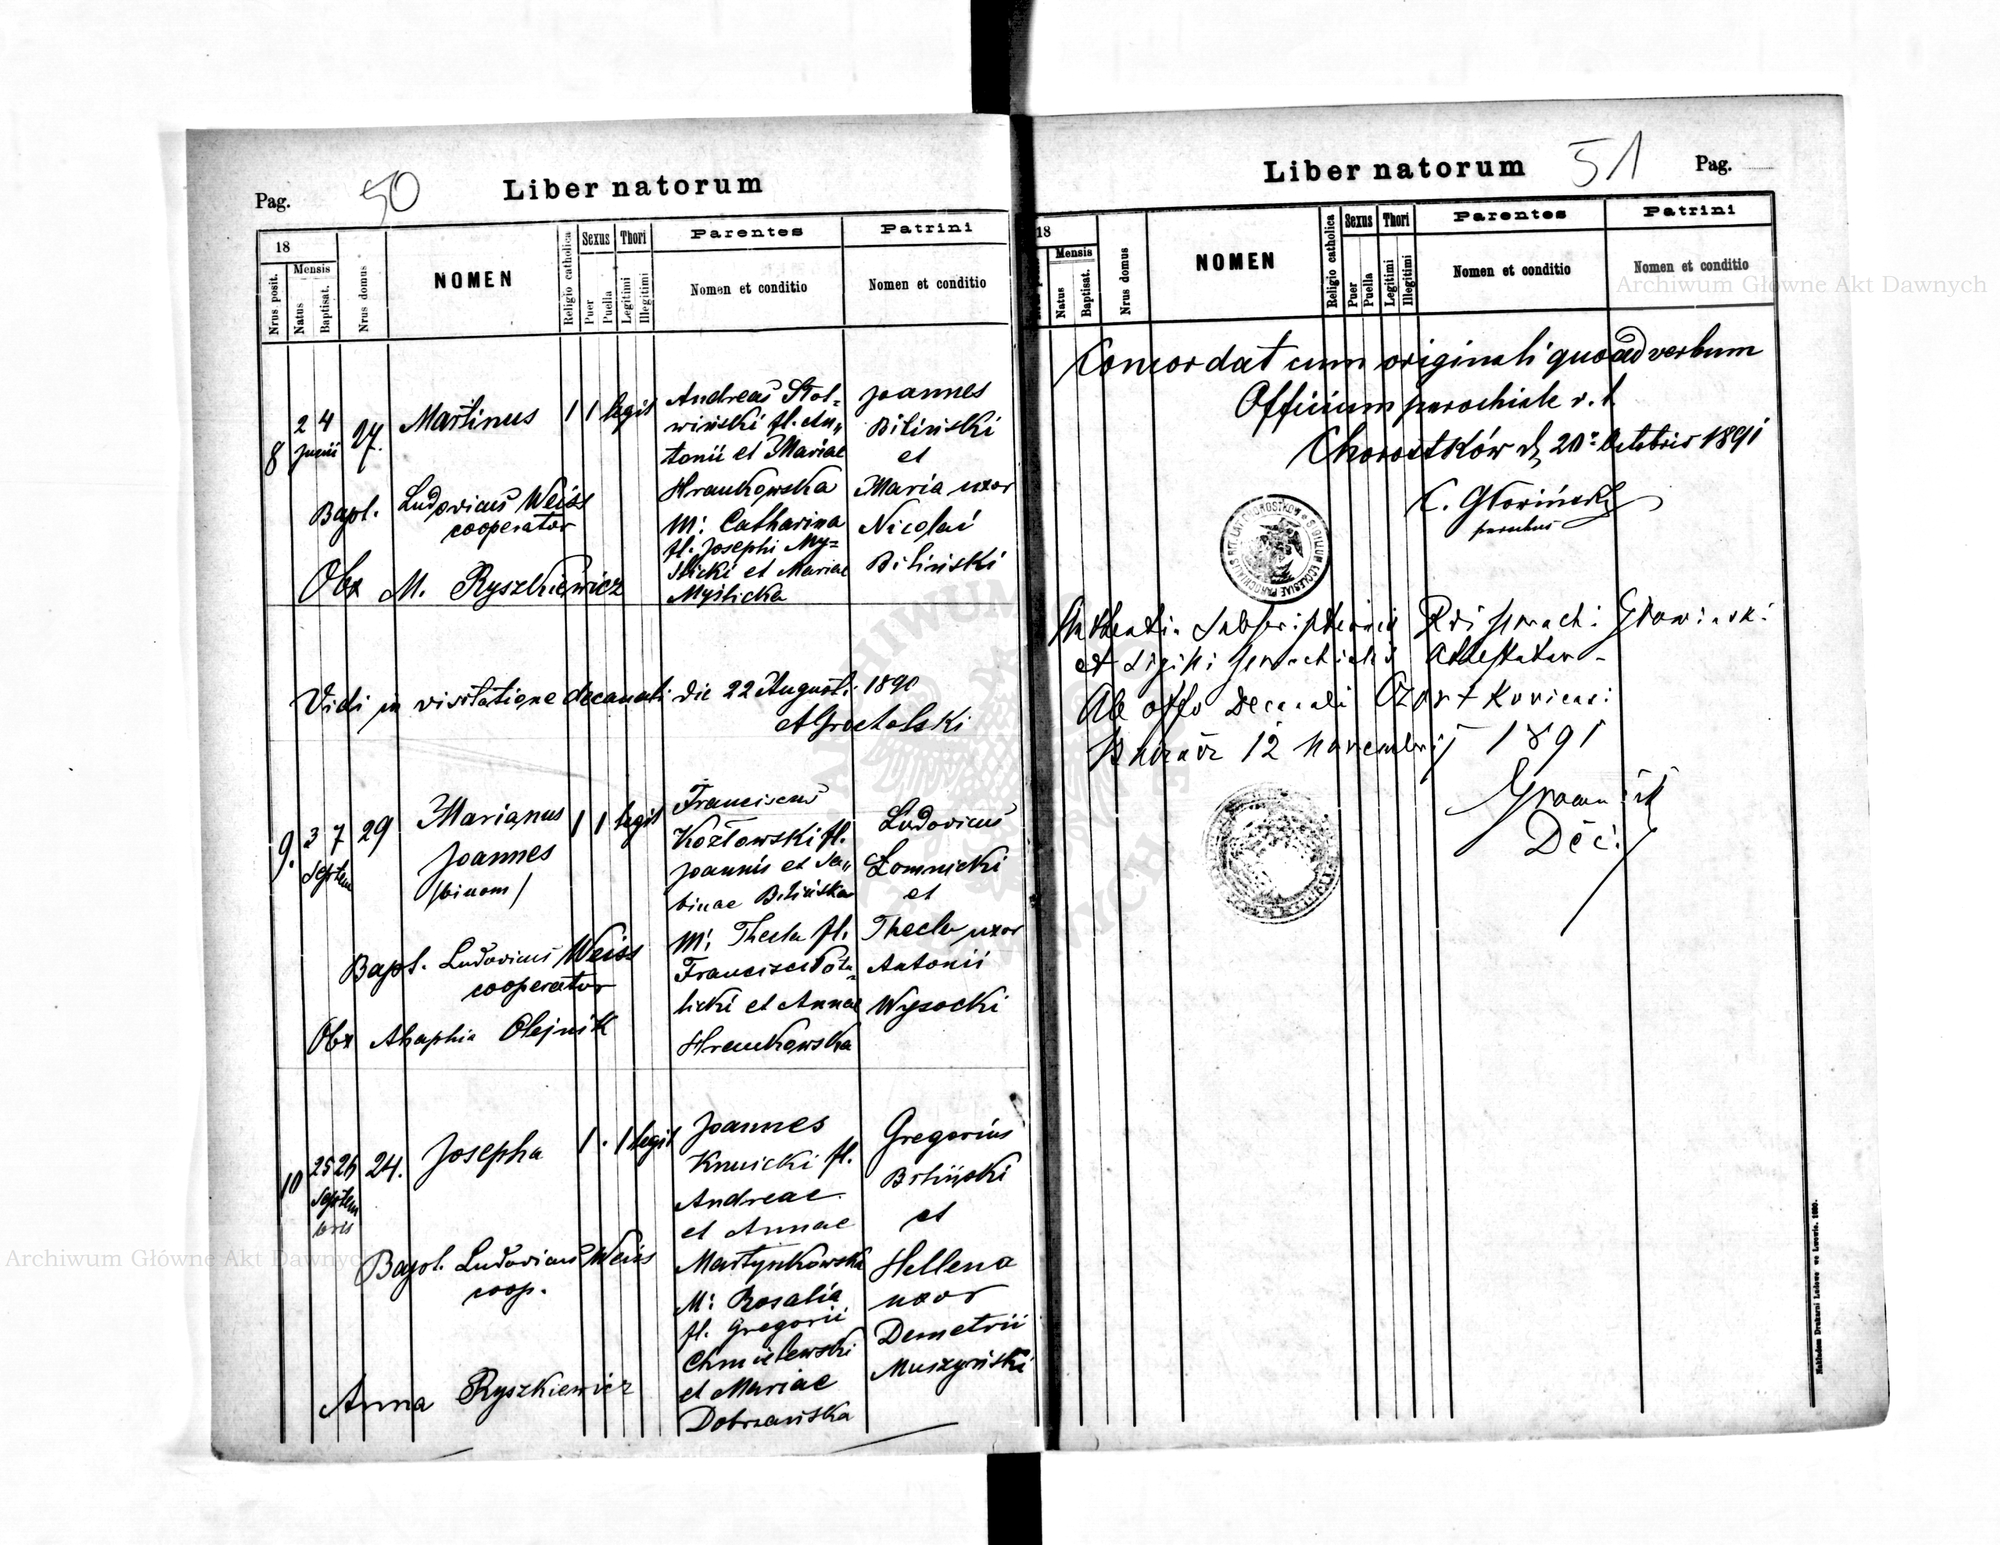 Pag. 50 Liber natorum
18
Nrus posit.
Mensis
Natus
Baptisat.
Nrus domus
NOMEN
Religio catholica
Sexus
Puer
Puella
Thori
Legitimi
Illegitimi
Parentes
Nomen et conditio
Patrini
Nomen et conditio
8
2 4
Junii
27.
Martinus
1 1 legit
Andreas Stol-
wiński fl. An„
tonii et Mariae
Hrankowska
M: Catharina
fl. Josephi My=
ślicki et Mariae
Myślicka
Joannes
Biliński
et
Maria uxor
Nicolai
Biliński
Bapt. Ludovicus Weiss
cooperator
Obx M. Ryszkiewicz
Vidi in visitatione decanali die 22 Augusti 1890
9.
3 7
Septem
29
Marianus
Joannes
/binom/
1 1 legit
Franciscus
Kozłowski fl.
Joannis et Sa„
binae Bilińska
M: Thecla fl.
licki et Annae
Hrankowska
Ludovicus
Łomnicki
et
Thecla uxor
Antonii
Wysocki
Bapt. Ludovicus Weiss
cooperator
Obx Ahaphia Olejnik
10
25 26
Septem
bris
24.
Josepha
1 . 1 legit
Joannes
Kmicki fl.
Andreae
et Annae
Martynkowska
M: Rosalia
fl. Gregorii
Chmielewski
et Mariae
Dobrzańska
Gregorius
Biliński
et
Hellena
uxor
Demetrii
Muszyński
Bapt. Ludovicus Weiss
coop.
Anna Ryszkiewicz
Liber natorum 51 Pag.
18
Mensis
Natus
Baptisat.
Nrus domus
NOMEN
Religio catholica
Sexus
Puer
Puella
Thori
Legitimi
Illegitimi
Parentes
Nomen et conditio
Patrini
Nomen et conditio
Concordat cum originali quoad verbum
Officium parochiale r. l.
Chorostków d. 20 Octobris 1891
parochus
et Sigilli parochialis attestatur
Ab offo Decanali Czortkoviensi
12 Novembris 1891
Dec.
Nakładem Drukarni Ludowe we Lwowie. 1890.
Archiwum Główne Akt Dawnych
Archiwum Główne Akt Dawnych